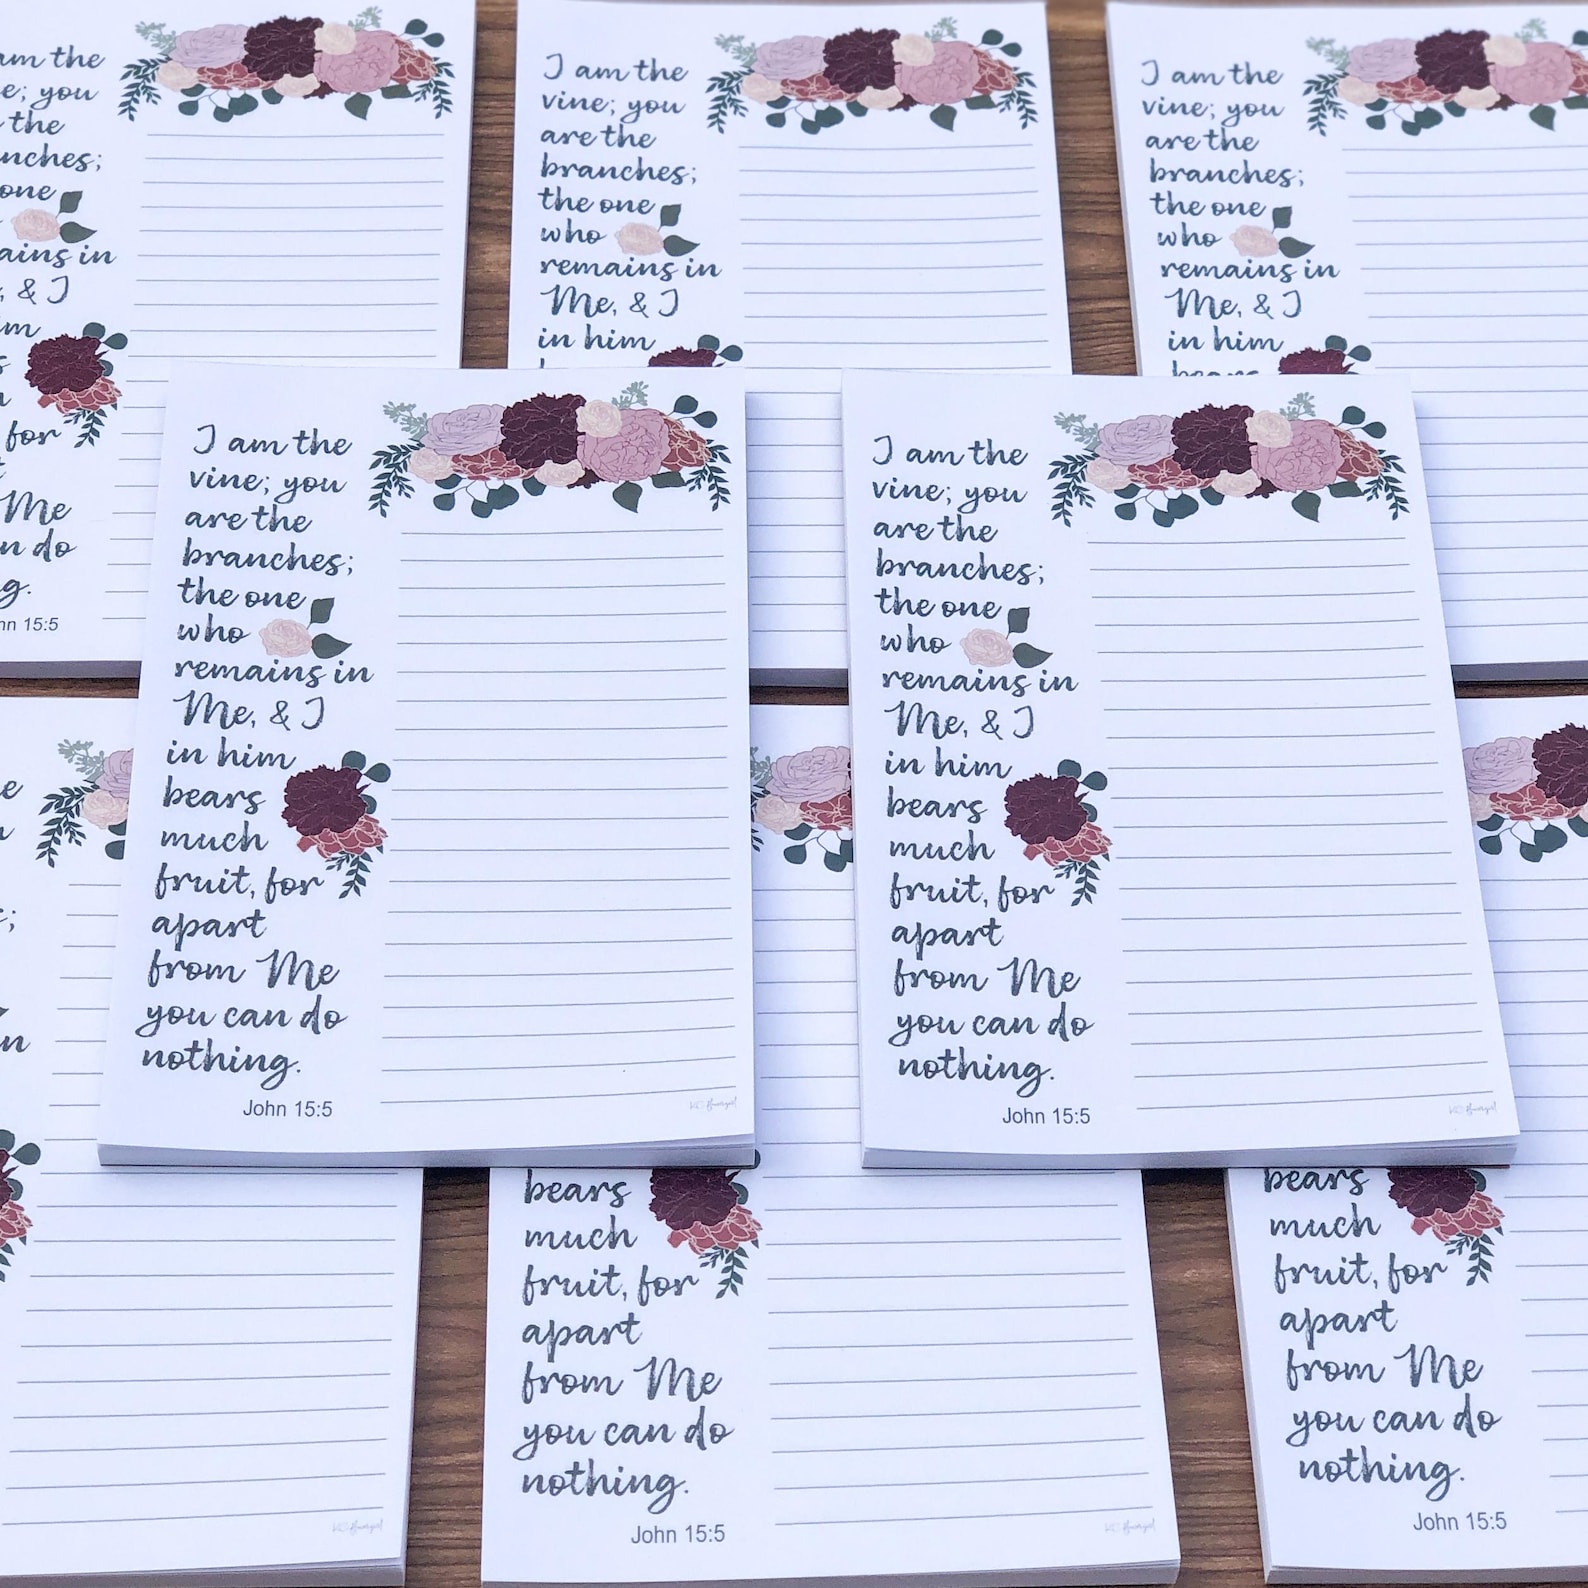 am the
; you
the
nches;
one
ains in
, & I
im
for
Me
n do
g.
hn 15:5
I am the
vine; you
are the
branches;
the one
who
remains in
Me, & I
in him
I am the
vine; you
are the
branches;
the one
who
remains in
Me, & I
in him
bears
I am the
vine; you
are the
branches;
the one
who
remains in
Me, & I
in him
bears
much
fruit, for
apart
from Me
you can do
nothing.
John 15:5
I am the
vine; you
are the
branches;
the one
who
remains in
Me, & I
in him
bears
much
fruit, for
apart
from Me
you can do
nothing.
John 15:5
bears
much
fruit, for
apart
from Me
you can do
nothing.
John 15:5
bears
much
fruit, for
apart
from Me
you can do
nothing.
John 15:5